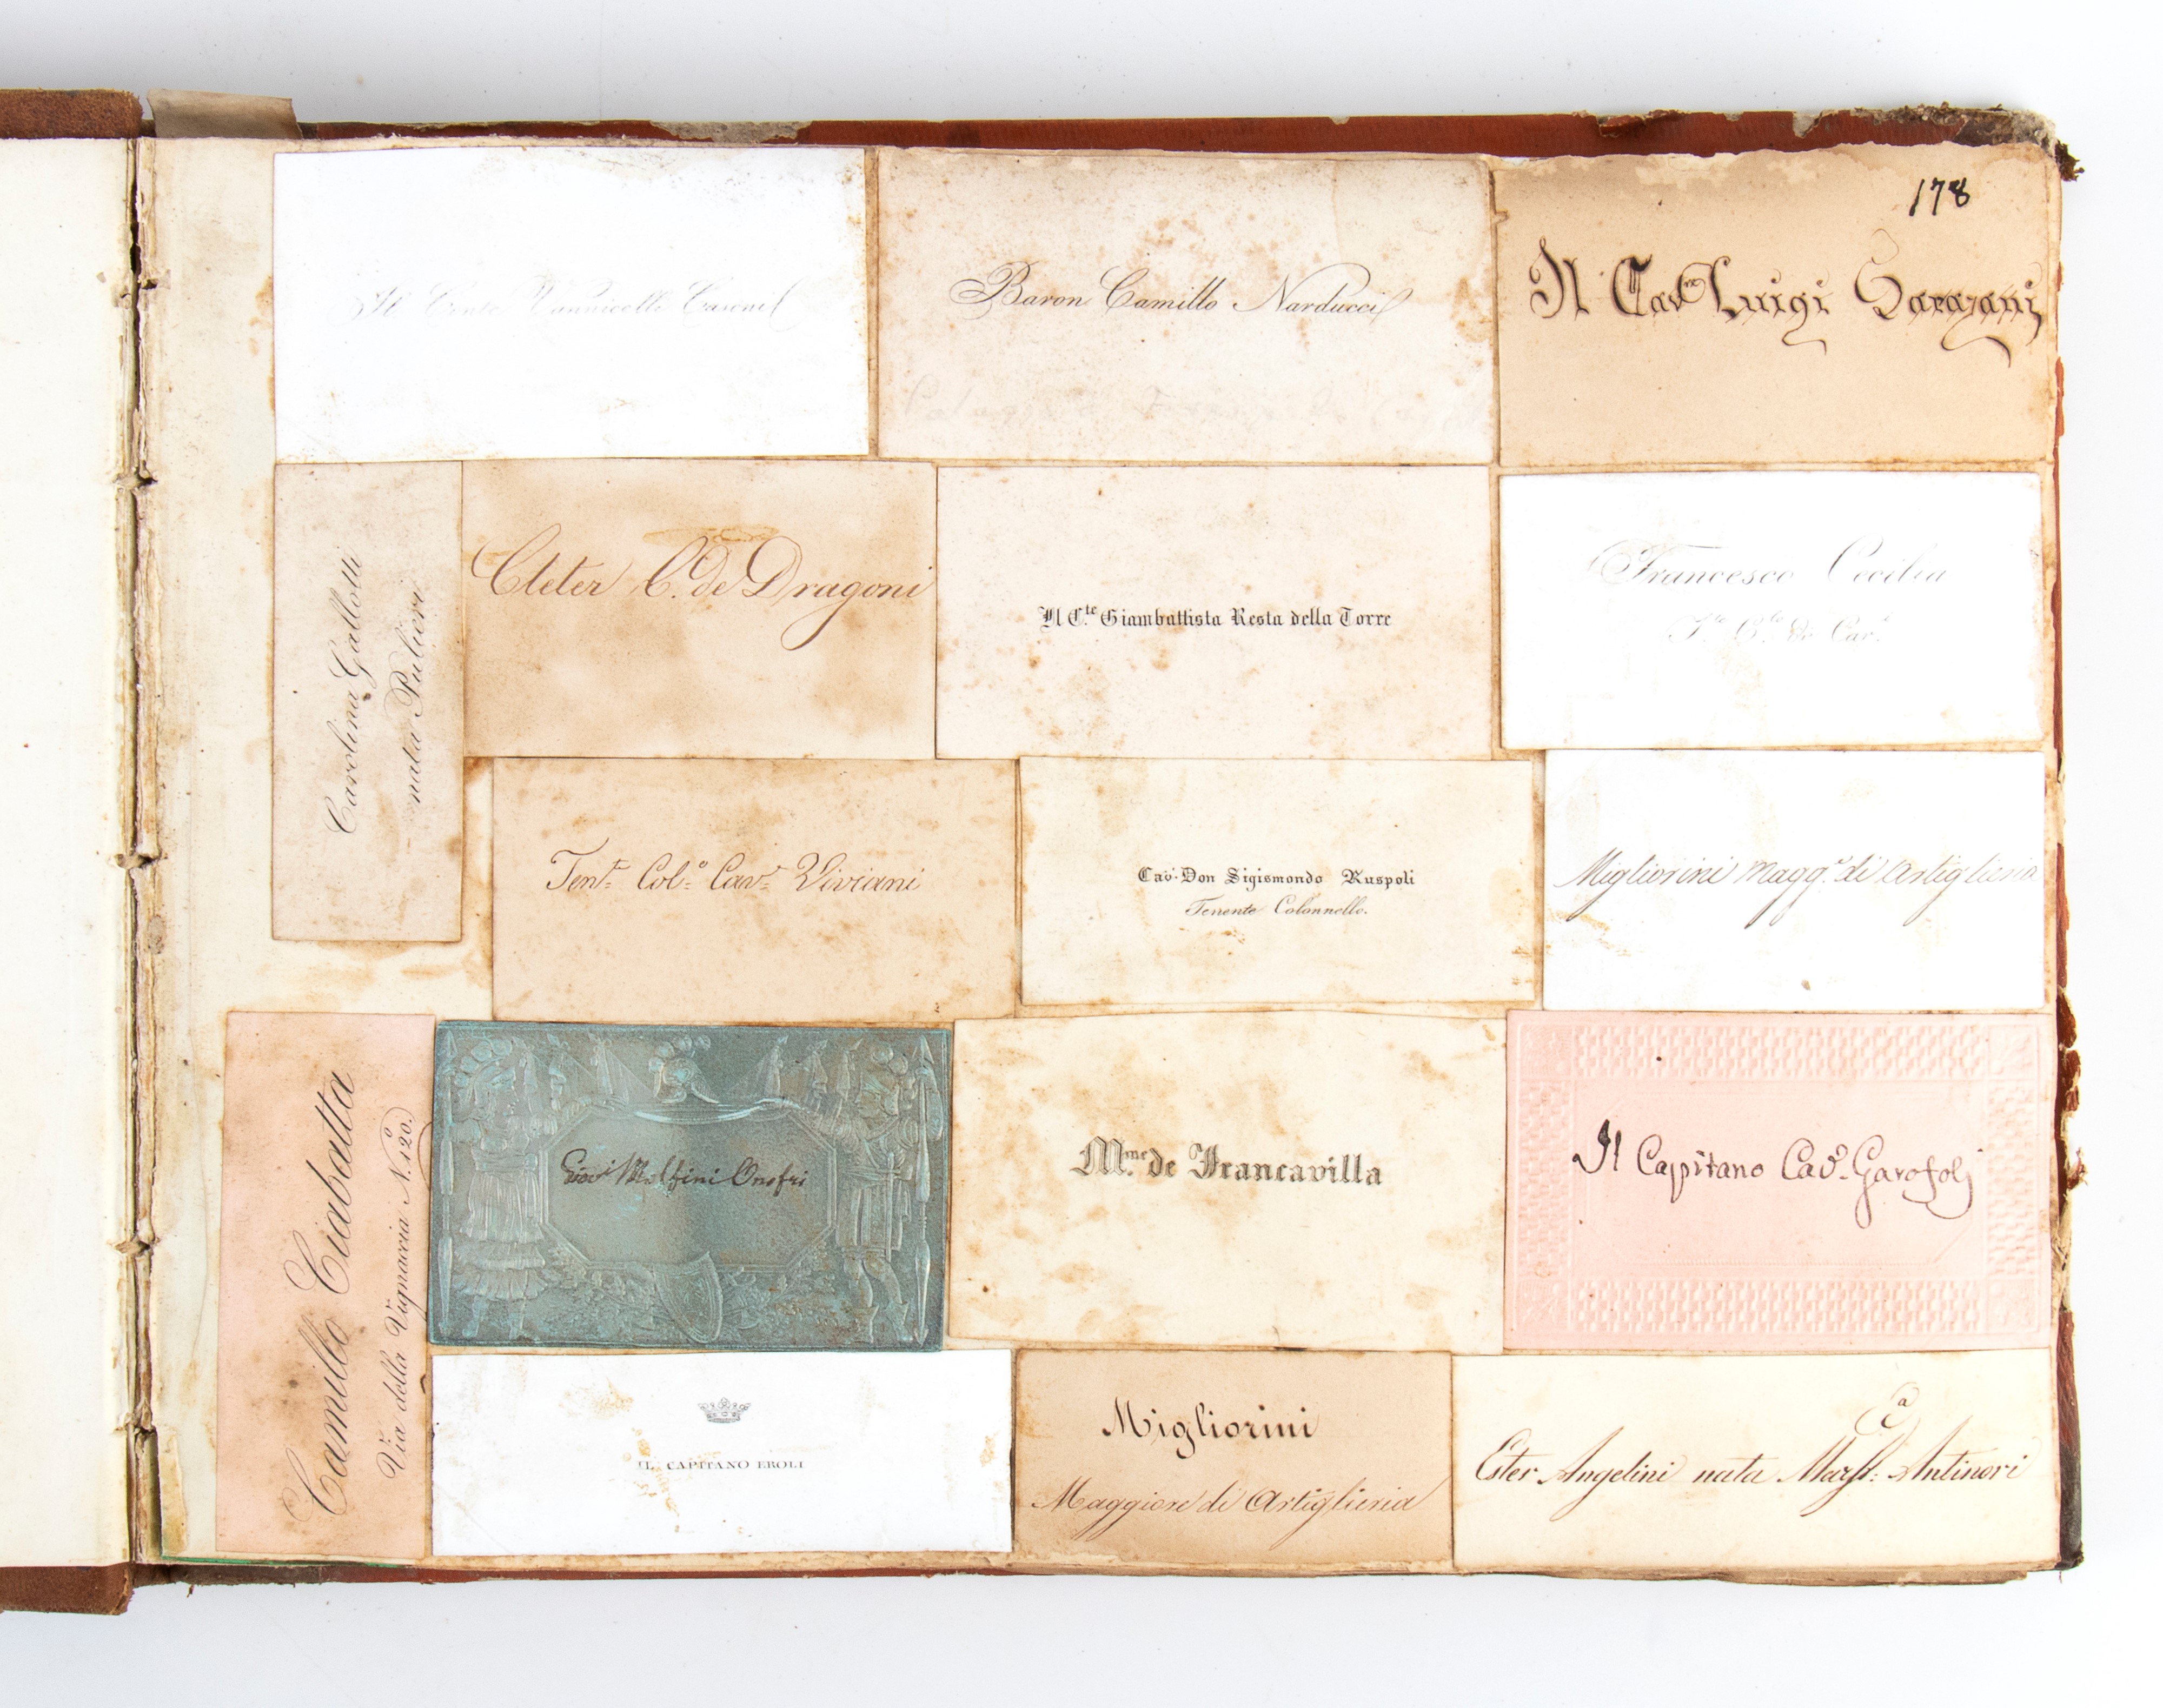 178
Il Conte Vannicelli Casoni
Baron Camillo Narducci
Il Cav.re Luigi
Carolina Gallotti
nata Pulieri
Cleter C. de Dragoni
Il C.te Giambattista Resta della Torre
Francesco Cecilia
T.te C.lo de Cav.
Ten.te Col.o Cav.r Viviani
Cav. Don Sigismondo Ruspoli
Tenente Colonnello.
Migliorini Magg.e di Artiglieria
Camillo Ciabatta
Via della Vignaccia N.o 120.
Giov.i Malfini Onofri
M.me de Francavilla
Il Capitano Cav.e Garofolj
IL CAPITANO EROLI
Migliorini
Maggiore di Artiglieria
Ester Angelini nata March.a Antinori